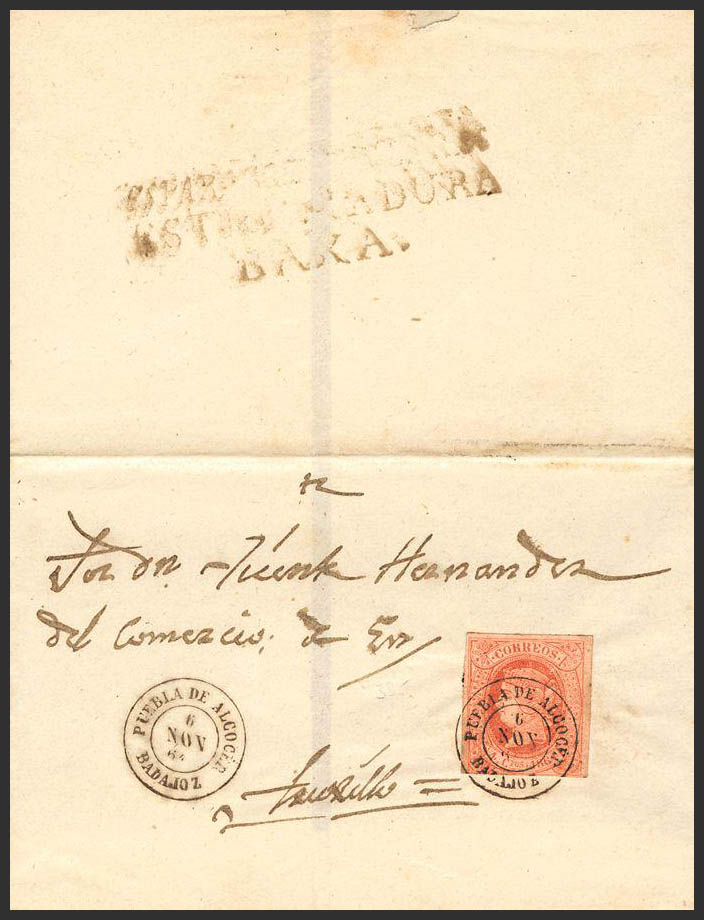 ESTREMADURA
BAXA.
Sor dn Vicente Hernandez
del Comercio; de
PUEBLA DE ALCOCER
6
NOV
64
BADAJOZ
CORREOS
PUEBLA DE ALCOCER
6
NOV
BADAJOZ
Truxillo =